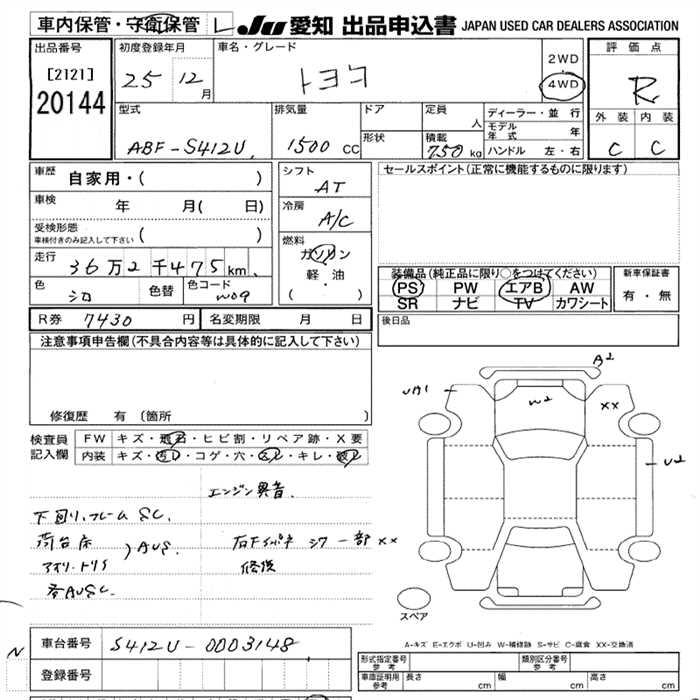 車内保管・守衛保管 L JU 愛知 出品申込書 JAPAN USED CAR DEALERS ASSOCIATION
出品番号 初度登録年月 車名・グレード 評価点
[2121] 25 12月 トヨタ 2WD 4WD R
20144
型式 排気量 ドア 定員 人 ディーラー・並行 外装 内装
形状 積載 モデル年式 年
ABF-S412U 1500 CC 750 kg ハンドル 左・右 C C
車歴 自家用・( ) シフト AT セールスポイント(正常に機能するものに限ります)
車検 年 月( 日) 冷房 A/C
受検形態
車検付きのみ記入して下さい ( ) 燃料
走行 36万2千475km ガソリン 装備品(純正品に限り○をつけてください) 新車保証書
軽・油 PS PW エアB AW 有・無
色 シロ 色替 色コード W09 ( ・ ) SR ナビ TV カワシート
R券 7430円 名変期限 月 日 後日品
注意事項申告欄(不具合内容等は具体的に記入して下さい)
A2
UA1 W2 XX
修復歴 有 (箇所
検査員 FW キズ・飛石・ヒビ割・リペア跡・X要
記入欄 内装 キズ・汚れ・コゲ・穴・スレ・キレ・破れ
U2
エンジン異音.
下回り,フレームSC.
荷台床 )AUS. 右F 一部 XX
アオリ・トリイ 修復
各AUSC.
スペア
A-キズ E-エクボ U-凹み W-補修跡 S-サビ C-腐食 XX-交換済
N 車台番号 S412U-0003148
登録番号
形式指定番号 参考 類別区分番号 参考
車庫証明用 参考 長さ cm 幅 cm 高さ cm